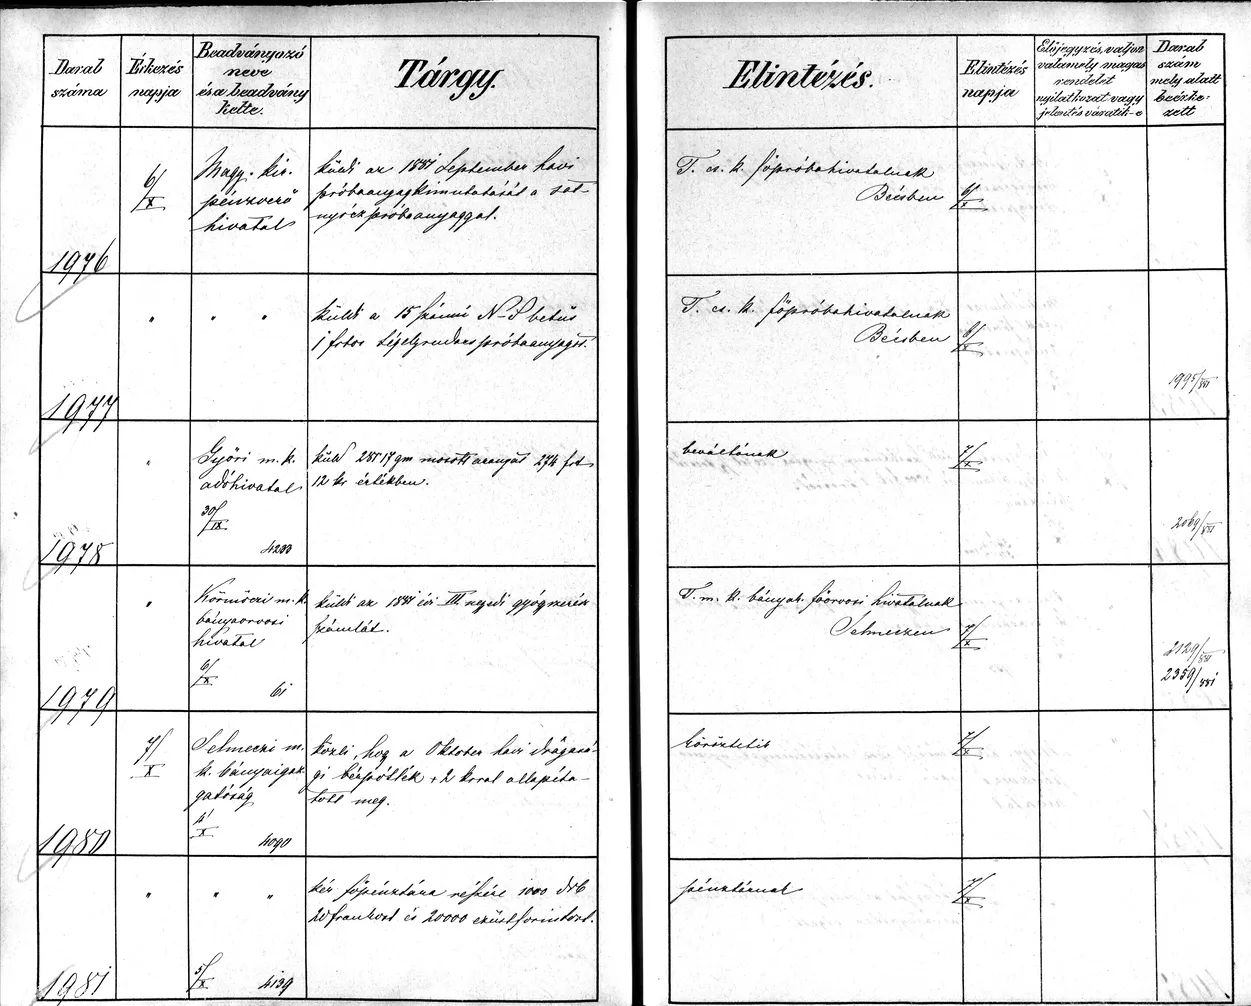 Darab száma
Érkezés napja
Beadványozó neve és a beadvány kelte.
Tárgy.
Elintézés.
Elintézés napja
Előjegyzés, valjon valamely magas rendelet nyilatkozat vagy jelentés váratik-e
Darab szám mely alatt beérkezett
1976
6/X
Magy. kir.
pénzverő
hivatal
küldi az 1881 September havi
próbaanyagkimutatását a
próbaanyaggal.
T. cs. k. főpróbahivatalnak
Bécsben
6/X
1977
" " " "
küldi a 15 számú N-S betűs
próbaanyagot.
T. cs. k. főpróbahivatalnak
Bécsben
6/X
1995/881
1978
"
Győri m. k.
adóhivatal
30/IX
4233
küld 281 17 gm mosott aranyat 274 frt
12 kr értékben.
beváltónak
7/X
2069/881
1979
"
Körmöczi m. k.
bányaorvosi
hivatal
6/X
61
küldi az 1881 évi III. negyedi gyógyszerész
számlát.
T. m. k. bányak. főorvosi hivatalnak
Selmeczen
7/X
2129/881
2359/881
1980
7/X
Selmeczi m.
k. bányaigaz
gatóság
4/X
4090
közli, hogy a Oktober havi drágasá-
gi bérpótlék + 2 krral állapíta-
tott meg.
köröztetik
7/X
1981
" " "
5/X
4139
kér főpénztára részére 1000 drb
20 frankost és 20000 ezüstforintost.
pénztárnak
7/X